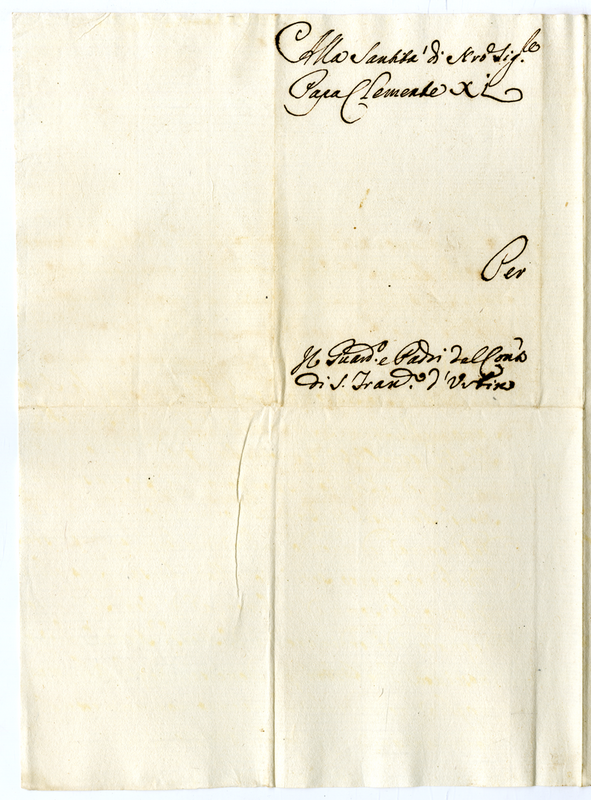 Alla Santità di Nro Sig.re
Papa Clemente XI
Per
Il Guard.o e Padri del Conv.o
di S. Fran.co d'Urbino